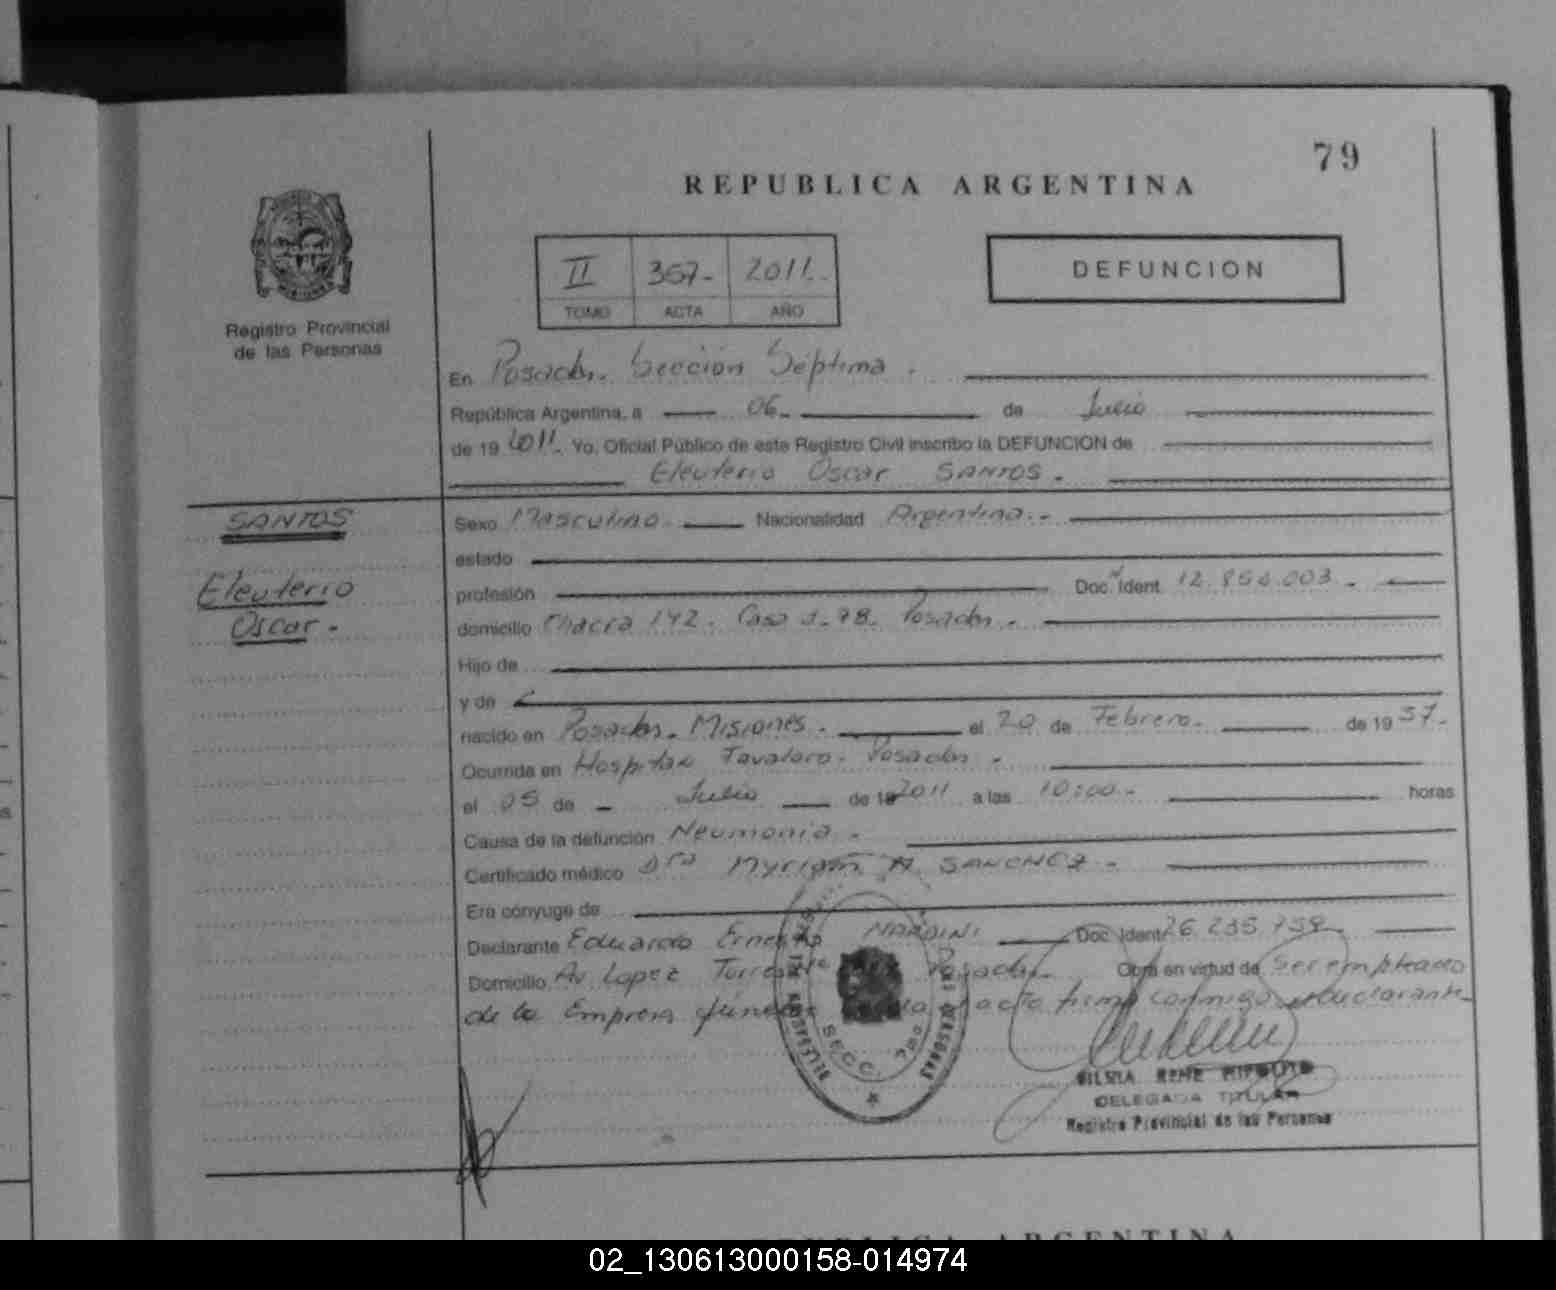 79
REPUBLICA ARGENTINA
II 367- 2011-
TOMO ACTA AÑO
DEFUNCION
Registro Provincial
de las Personas
En Posadas. Sección Séptima.
República Argentina, a 06- de Julio
de 19 2011. Yo, Oficial Público de este Registro Civil inscribo la DEFUNCION de
Eleuterio Oscar SANTOS.
SANTOS
Eleuterio
Oscar-
Sexo Masculino. Nacionalidad Argentina.-
estado
profesión Doc. Ident. 12.854.003.-
domicilio Chacra 142. Casa 1.78. Posadas.-
Hijo de
y de
nacido en Posadas. Misiones. el 20 de Febrero. de 19 57.
Ocurrida en Hospital Favaloro. Posadas.
el 05 de Julio de 19 2011 a las 10:00.- horas
Causa de la defunción Neumonia.
Certificado médico Dra Myriam A. SANCHEZ.
Era cónyuge de
Declarante Eduardo Ernesto NARDINI Doc. Ident. 26.235.759
Domicilio Av Lopez Torres Posadas. Obra en virtud de ser empleado
de la Empresa fúnebre acta firma conmigo declarante
SECC. 7ma
SILVIA RENE HIPOLITO
DELEGADA TITULAR
Registro Provincial de las Personas
REPUBLICA ARGENTINA
02_130613000158-014974